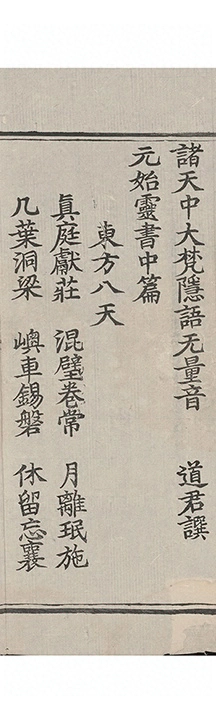 諸天中大梵隱語无量音 道君譔
元始靈書中篇
東方八天
真庭獻莊 混璧卷常 月離珉施
几葉洞梁 嶼車錫磐 休留忘襄